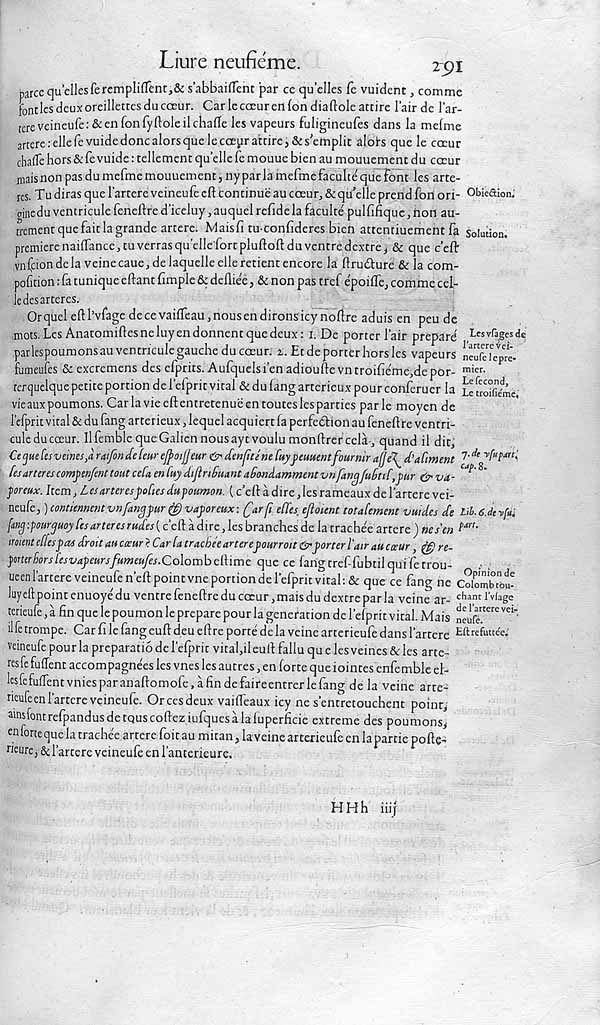 Liure neufiéme. 291
parce qu'elles ſe rempliſſent, & s'abbaiſſent par ce qu'elles ſe vuident, comme
font les deux oreillettes du cœur. Car le cœur en ſon diaſtole attire l'air de l'ar-
tere veineuſe: & en ſon ſyſtole il chaſſe les vapeurs fuligineuſes dans la meſme
artere: elle ſe vuide donc alors que le cœur attire, & s'emplit alors que le cœur
chaſſe hors & ſe vuide: tellement qu'elle ſe mouue bien au mouuement du cœur
mais non pas du meſme mouuement, ny par la meſme faculté que font les arte-
res. Tu diras que l'artere veineuſe eſt continuë au cœur, & qu'elle prend ſon ori-
Obiection.
gine du ventricule ſeneſtre d'iceluy, auquel reſide la faculté pulſifique, non au-
trement que fait la grande artere. Mais ſi tu conſideres bien attentiuement ſa
Solution.
premiere naiſſance, tu verras qu'elle ſort pluſtoſt du ventre dextre, & que c'eſt
vn ſcion de la veine caue, de laquelle elle retient encore la ſtructure & la com-
poſition: ſa tunique eſtant ſimple & deſliée, & non pas treſ époiſſe, comme cel-
le des arteres.
Or quel eſt l'vſage de ce vaiſſeau, nous en dirons icy noſtre aduis en peu de
mots. Les Anatomiſtes ne luy en donnent que deux: 1. De porter l'air preparé
Les vſages de
l'artere vei-
neuſe le pre-
mier.
par les poumons au ventricule gauche du cœur. 2. Et de porter hors les vapeurs
fumeuſes & excremens des eſprits. Auſquels i'en adiouſte vn troiſiéme, de por-
Le ſecond,
Le troiſiéme.
ter quelque petite portion de l'eſprit vital & du ſang arterieux pour conſeruer la
vie aux poumons. Car la vie eſt entretenuë en toutes les parties par le moyen de
l'eſprit vital & du ſang arterieux, lequel acquiert ſa perfection au ſeneſtre ventri-
cule du cœur. Il ſemble que Galien nous ayt voulu monſtrer celà, quand il dit,
Ce que les veines, à raiſon de leur eſpoiſſeur & denſité ne luy peuuent fournir aſſez d'aliment
7. de vſu part.
cap. 8.
les arteres compenſent tout cela en luy diſtribuant abondamment vn ſang ſubtil, pur & va-
poreux. Item, Les arteres polies du poumon. (c'eſt à dire, les rameaux de l'artere vei-
neuſe,) contiennent vn ſang pur & vaporeux: Car ſi elles eſtoient totalement vuides de
Lib. 6. de vſu
part.
ſang: pourquoy les arteres rudes (c'eſt à dire, les branches de la trachée artere) ne s'en
iroient elles pas droit au cœur? Car la trachée artere pourroit & porter l'air au cœur, & re-
porter hors les vapeurs fumeuſes. Colomb eſtime que ce ſang treſ-ſubtil qui ſe trou-
ue en l'artere veineuſe n'eſt point vne portion de l'eſprit vital: & que ce ſang ne
Opinion de
Colomb tou-
chant l'vſage
de l'artere vei-
neuſe.
Eſt refuttée.
luy eſt point enuoyé du ventre ſeneſtre du cœur, mais du dextre par la veine ar-
terieuſe, à fin que le poumon le prepare pour la generation de l'eſprit vital. Mais
il ſe trompe. Car ſi le ſang euſt deu eſtre porté de la veine arterieuſe dans l'artere
veineuſe pour la preparatiõ de l'eſprit vital, il euſt fallu que les veines & les arte-
res ſe fuſſent accompagnées les vnes les autres, en ſorte que iointes enſemble el-
les ſe fuſſent vnies par anaſtomoſe, à fin de faire entrer le ſang de la veine arte-
rieuſe en l'artere veineuſe. Or ces deux vaiſſeaux icy ne s'entretouchent point,
ains ſont reſpandus de tous coſtez iuſques à la ſuperficie extreme des poumons,
en ſorte que la trachée artere ſoit au mitan, la veine arterieuſe en la partie poſte-
rieure, & l'artere veineuſe en l'anterieure.
HHh iiij